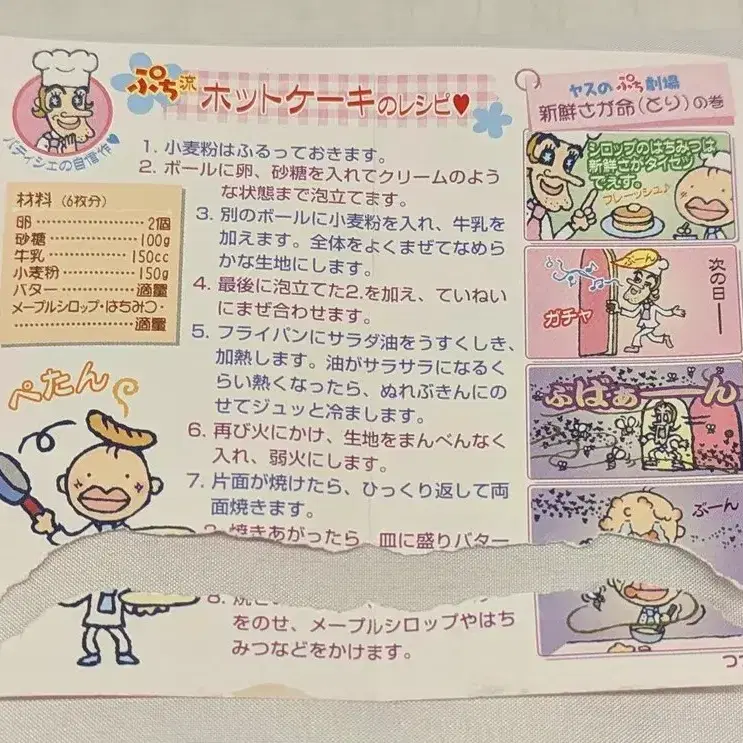 ぷち流 ホットケーキのレシピ♥
パティシエの自信作♥
材料（6枚分）
卵…………………2個
砂糖………………100g
牛乳………………150cc
小麦粉……………150g
バター……………適量
メープルシロップ・はちみつ・
……………………適量
ぺたん
1. 小麦粉はふるっておきます。
2. ボールに卵、砂糖を入れてクリームのよう
な状態まで泡立てます。
3. 別のボールに小麦粉を入れ、牛乳を
加えます。全体をよくまぜてなめら
かな生地にします。
4. 最後に泡立てた2.を加え、ていねい
にまぜ合わせます。
5. フライパンにサラダ油をうすくしき、
加熱します。油がサラサラになるく
らい熱くなったら、ぬれぶきんにの
せてジュッと冷まします。
6. 再び火にかけ、生地をまんべんなく
入れ、弱火にします。
7. 片面が焼けたら、ひっくり返して両
面焼きます。
焼きあがったら、皿に盛りバター
8.
をのせ、メープルシロップやはち
みつなどをかけます。
ヤスのぷち劇場
新鮮さが命（とり）の巻
シロップのはちみつは、
新鮮さがタイセツ
でえす。
フレーッシュ♪
次の日―
ぶーん
ガチャ
ぶばぁーーん
ぶーん